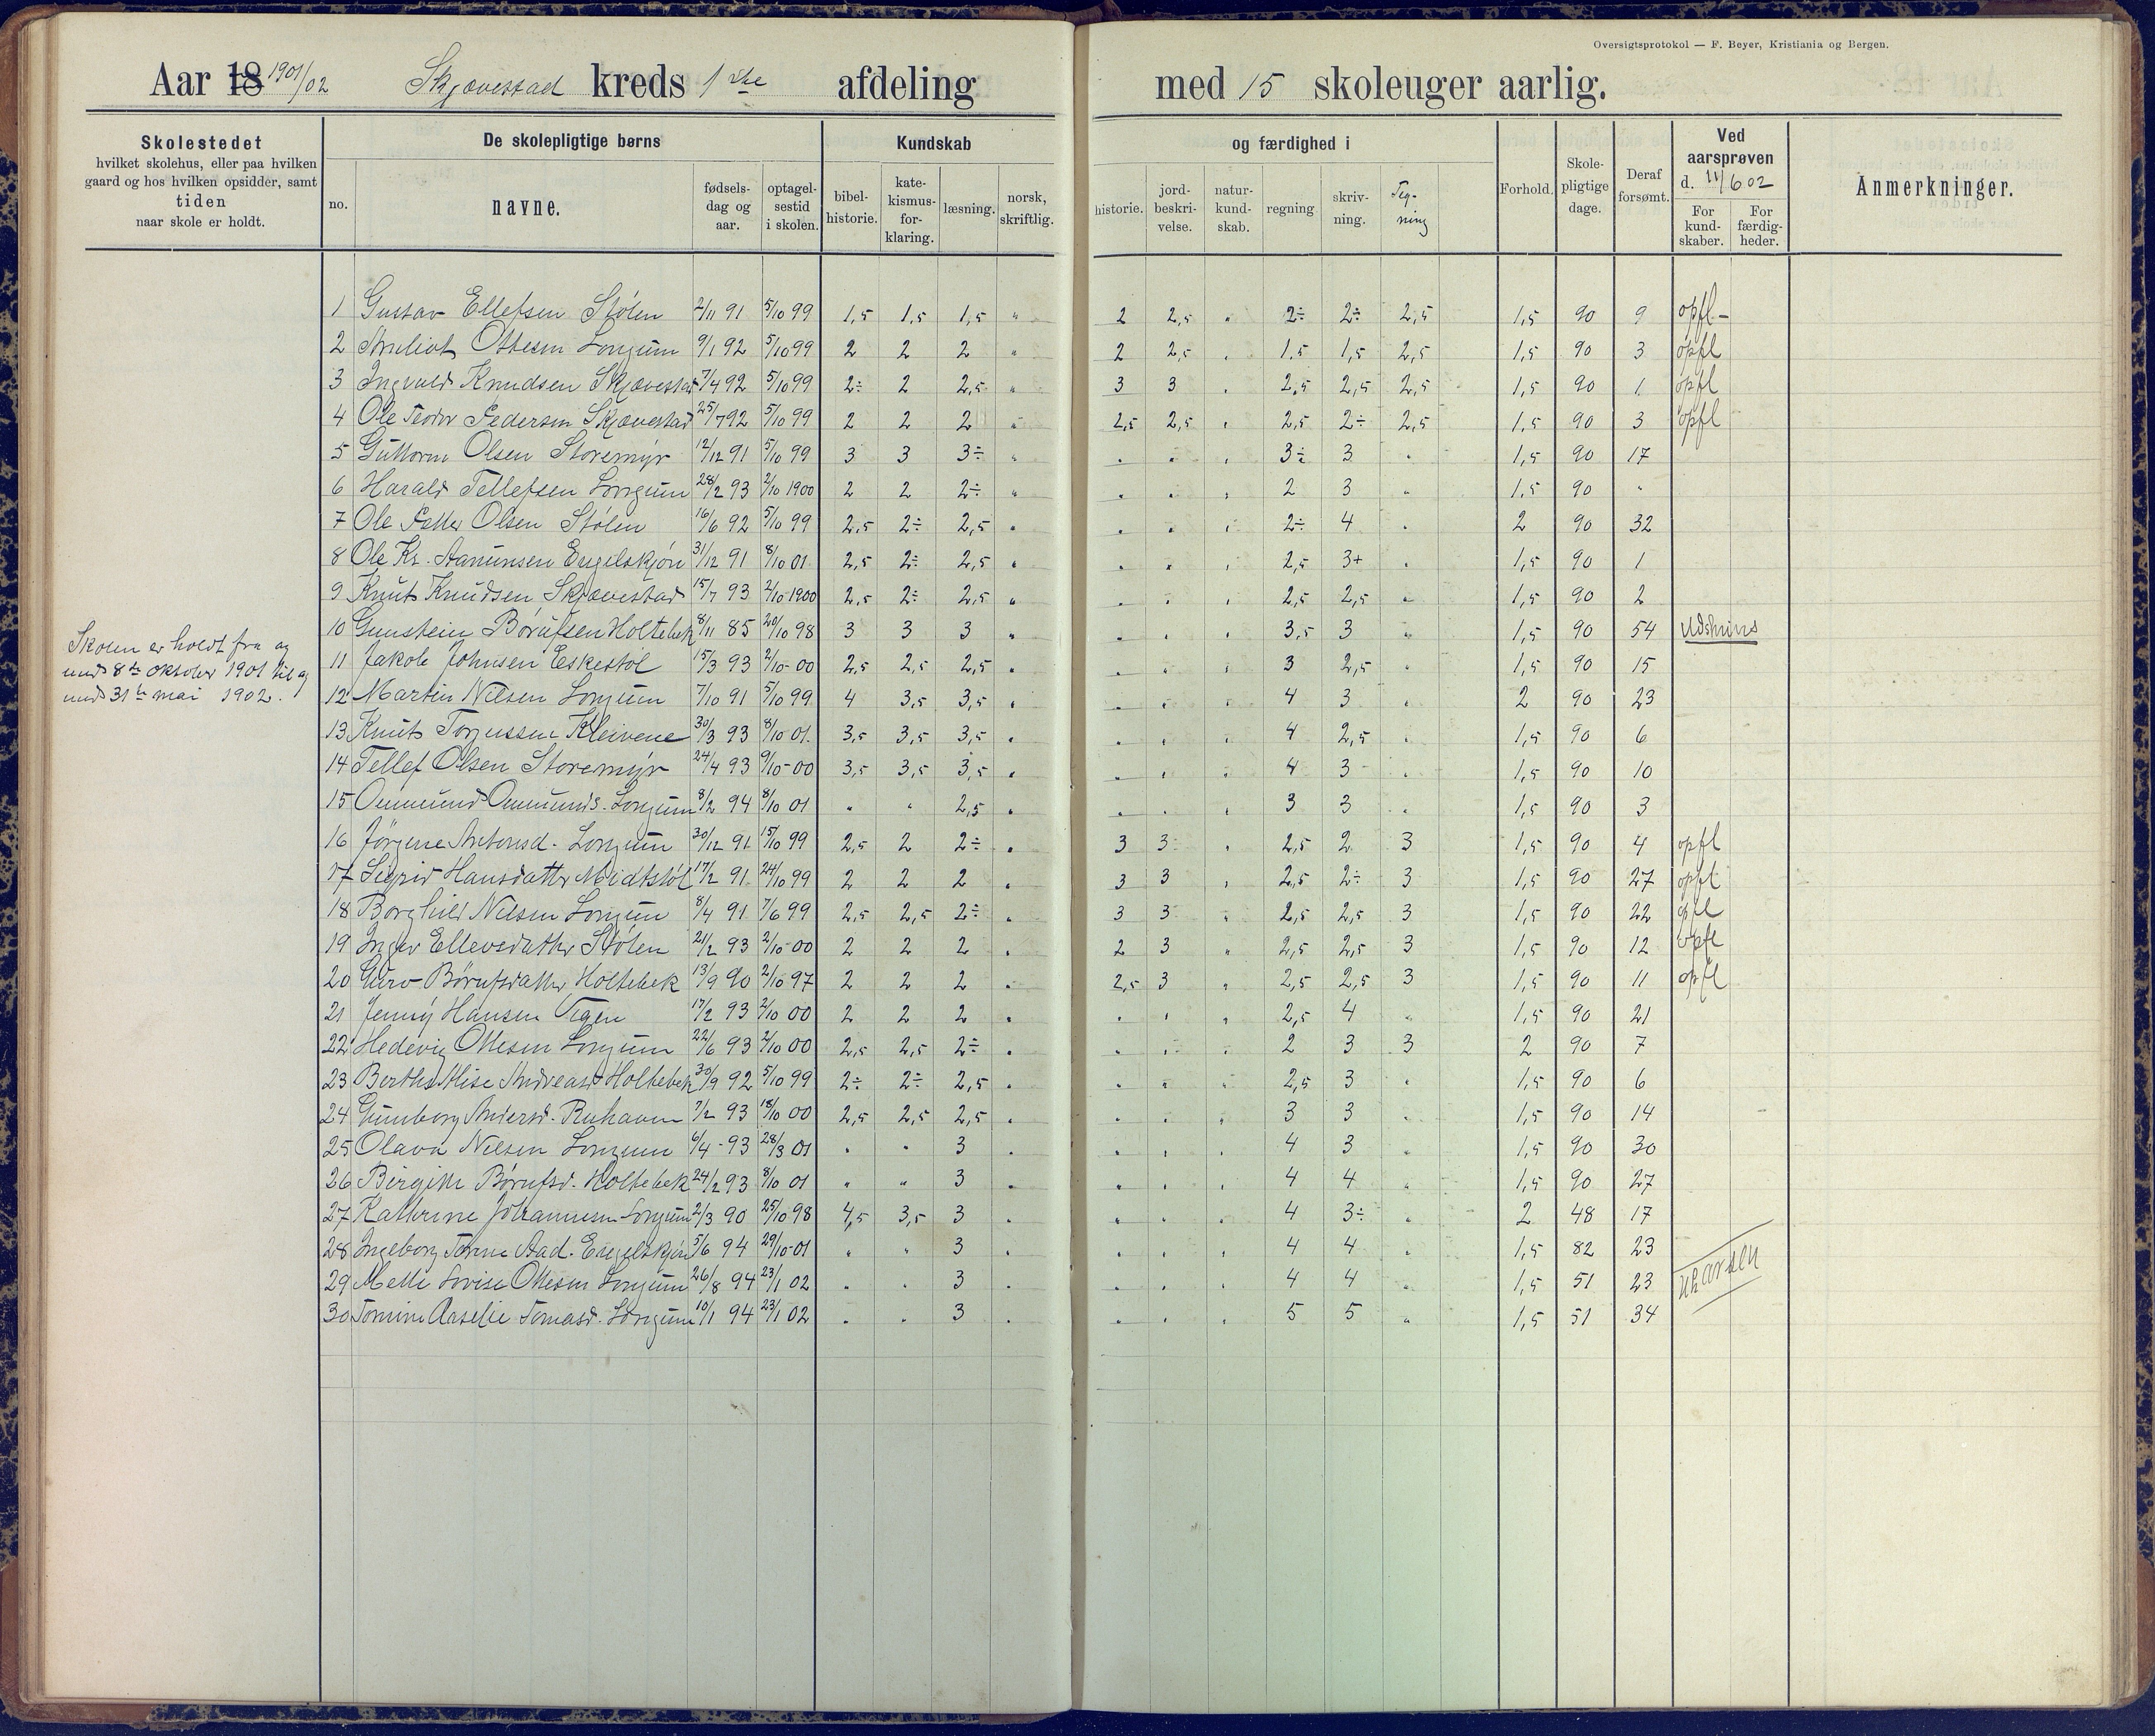 Oversigtsprotokol — F. Beyer, Kristiania og Bergen.
Aar 18 1901/02 Skjævestad kreds 1ste afdeling med 15 skoleuger aarlig.
Skolestedet
hvilket skolehus, eller paa hvilken
gaard og hos hvilken opsidder, samt
tiden
naar skole er holdt.
De skolepligtige børns
no.
navne.
fødsels-
dag og
aar.
optagel-
sestid
i skolen.
Kundskab
bibel-
historie.
kate-
kismus-
for-
klaring.
læsning.
norsk,
skriftlig.
og færdighed i
historie.
jord-
beskri-
velse.
natur-
kund-
skab.
regning
skriv-
ning.
Teg-
ning
Forhold.
Skole-
pligtige
dage.
Deraf
forsømt.
Ved
aarsprøven
d. 11/6 02
For
kund-
skaber.
For
færdig-
heder.
Anmerkninger.
Skolen er holdt fra og
med 8de Oktober 1901 til og
med 31te mai 1902.
1 Gustav Ellefsen Stølen 2/11 91 5/10 99 1,5 1,5 1,5 " 2 2,5 " 2÷ 2÷ 2,5 1,5 90 9 opfl-
2 Ottesen Longum 9/1 92 5/10 99 2 2 2 " 2 2,5 " 1,5 1,5 2,5 1,5 90 3 opfl
3 Ingvald Knudsen Skjævestad 7/4 92 5/10 99 2÷ 2 2,5 " 3 3 " 2,5 2,5 2,5 1,5 90 1 opfl
4 Ole Teodor Pedersen Skjævestad 25/7 92 5/10 99 2 2 2 " 2,5 2,5 " 2,5 2÷ 2,5 1,5 90 3 opfl
5 Guttorm Olsen Storemyr 12/12 91 5/10 99 3 3 3÷ " " " " 3÷ 3 " 1,5 90 17
6 Harald Tellefsen Longum 28/2 93 2/10 1900 2 2 2÷ " " " " 2 3 " 1,5 90 "
7 Ole Petter Olsen Stølen 16/6 92 5/10 99 2,5 2÷ 2,5 " " " " 2÷ 4 " 2 90 32
8 Ole Kr. Aanunsen Engelskjøn 31/12 91 8/10 01 2,5 2÷ 2,5 " " " " 2,5 3+ " 1,5 90 1
9 Knut Knudsen Skjævestad 15/7 93 2/10 1900 2,5 2÷ 2,5 " " " " 2,5 2,5 " 1,5 90 2
10 Gunstein Børufsen Holtebek 8/11 85 20/10 98 3 3 3 " " " " 3,5 3 " 1,5 90 54 Udskrives
11 Jakob Johnsen Eskestøl 15/3 93 2/10-00 2,5 2,5 2,5 " " " " 3 2,5 " 1,5 90 15
12 Martin Nilsen Longum 7/10 91 5/10 99 4 3,5 3,5 " " " " 4 3 " 2 90 23
13 Knut Torjussen Kleivene 30/3 93 8/10 01 3,5 3,5 3,5 " " " " 4 2,5 " 1,5 90 6
14 Tellef Olsen Storemyr 24/4 93 9/10-00 3,5 3,5 3,5 " " " " 4 3 " 1,5 90 10
15 Onmund Onmunds. Longum 8/2 94 8/10 01 " " 2,5 " " " " 3 3 " 1,5 90 3
16 Jørgine Antonsd. Longum 30/12 91 15/10 99 2,5 2 2÷ " 3 3 " 2,5 2 3 1,5 90 4 opfl
17 Sigrid Hansdatter Midtstøl 17/2 91 24/10 99 2 2 2 " 3 3 " 2,5 2÷ 3 1,5 90 27 opfl
18 Borghild Nilsen Longum 8/4 91 7/6 99 2,5 2,5 2÷ " 3 3 " 2,5 2,5 3 1,5 90 22 opfl
19 Inger Ellevsdatter Stølen 21/2 93 2/10-00 2 2 2 " 2 3 " 2,5 2,5 3 1,5 90 12 opfl
20 Guro Børufsdatter Holtebek 13/9 90 2/10 97 2 2 2 " 2,5 3 " 2,5 2,5 3 1,5 90 11 opfl
21 Jenny Hansen Tegen 17/2 93 2/10 00 2 2 2 " " " " 2,5 4 " 1,5 90 21
22 Hedevig Ottesen Longum 22/6 93 2/10 00 2,5 2,5 2÷ " " " " 2 3 3 2 90 7
23 Berthe Alise Andreasd Holtebek 30/9 92 5/10 99 2÷ 2÷ 2,5 " " " " 2,5 3 " 1,5 90 6
24 Gunborg Andersd. 7/2 93 18/10 00 2,5 2,5 2,5 " " " " 3 3 " 1,5 90 14
25 Olava Nilsen Longum 6/4-93 28/3 01 " " 3 " " " " 4 3 " 1,5 90 30
26 Birgitte Børufsd. Holtebek 24/2 93 8/10 01 " " 3 " " " " 4 4 " 1,5 90 27
27 Kathrine Johannesen Longum 2/3 90 25/10 98 4,5 3,5 3 " " " " 4 3÷ " 2 48 17
28 Ingeborg Tomine Aad. Engelskjøn 5/6 94 29/10-01 " " 3 " " " " 4 4 " 1,5 82 23
29 Mette Lovise Ottesen Longum 26/8 94 23/1 02 " " 3 " " " " 4 4 " 1,5 51 23
30 Tomine Aaselie Tomasd. Longum 10/1 94 23/1 02 " " 3 " " " " 5 5 " 1,5 51 34